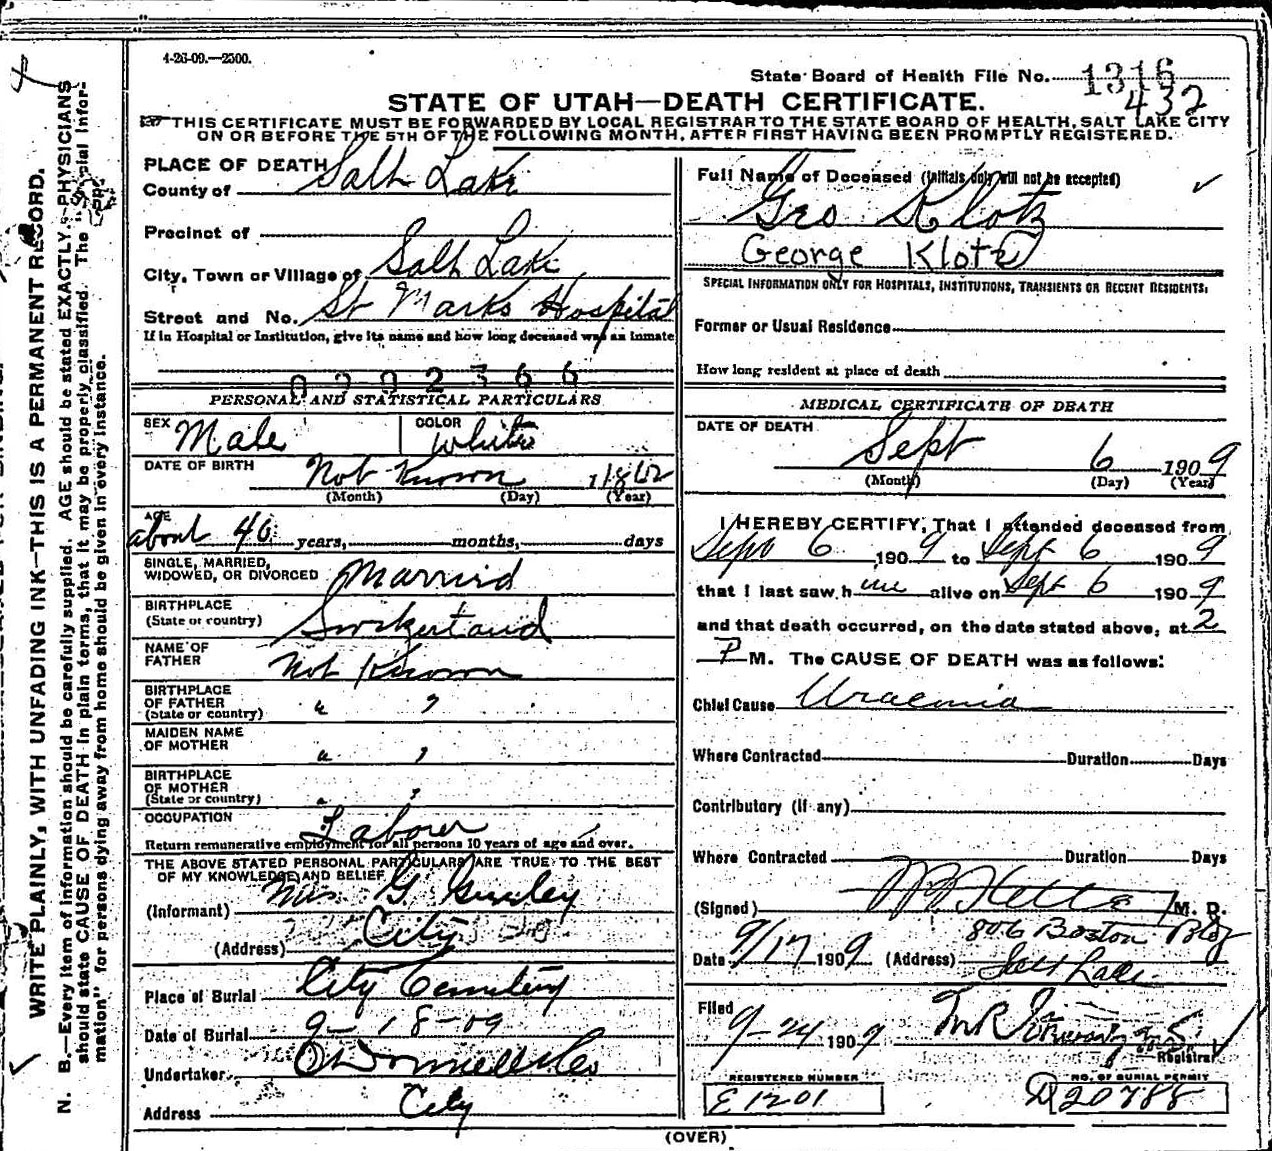 4-26-09.—2500.
State Board of Health File No. 1316
432
STATE OF UTAH—DEATH CERTIFICATE.
THIS CERTIFICATE MUST BE FORWARDED BY LOCAL REGISTRAR TO THE STATE BOARD OF HEALTH, SALT LAKE CITY
ON OR BEFORE THE 5TH OF THE FOLLOWING MONTH, AFTER FIRST HAVING BEEN PROMPTLY REGISTERED.
WRITE PLAINLY, WITH UNFADING INK—THIS IS A PERMANENT RECORD.
N. B.—Every item of information should be carefully supplied. AGE should be stated EXACTLY. PHYSICIANS
should state CAUSE OF DEATH in plain terms, that it may be properly classified. The "Special Infor-
mation" for persons dying away from home should be given in every instance.
PLACE OF DEATH
County of Salt Lake
Precinct of
City, Town or Village of Salt Lake
Street and No. St Marks Hospital
If in Hospital or Institution, give its name and how long deceased was an inmate
0202366
PERSONAL AND STATISTICAL PARTICULARS
SEX Male COLOR White
DATE OF BIRTH Not Known 1862
(Month) (Day) (Year)
AGE
about 40 years, months, days
SINGLE, MARRIED,
WIDOWED, OR DIVORCED Married
BIRTHPLACE
(State or country) Switzerland
NAME OF
FATHER Not Known
BIRTHPLACE
OF FATHER
(State or country) " "
MAIDEN NAME
OF MOTHER " "
BIRTHPLACE
OF MOTHER
(State or country) " "
OCCUPATION Laborer
Return remunerative employment for all persons 10 years of age and over.
THE ABOVE STATED PERSONAL PARTICULARS ARE TRUE TO THE BEST
OF MY KNOWLEDGE AND BELIEF
(Informant) Mrs G.
(Address) City
Place of Burial City Cemetery
Date of Burial 9-18-09
Undertaker O'Donnell & Co
Address City
Full Name of Deceased (Initials only will not be accepted)
Geo Klotz
George Klotz
SPECIAL INFORMATION ONLY FOR HOSPITALS, INSTITUTIONS, TRANSIENTS OR RECENT RESIDENTS:
Former or Usual Residence
How long resident at place of death
MEDICAL CERTIFICATE OF DEATH
DATE OF DEATH
Sept 6 1909
(Month) (Day) (Year)
I HEREBY CERTIFY, That I attended deceased from
Sept 6 1909 to Sept 6 1909
that I last saw him alive on Sept 6 1909
and that death occurred, on the date stated above, at 2
P M. The CAUSE OF DEATH was as follows:
Chief Cause Uraemia
Where Contracted Duration Days
Contributory (if any)
Where Contracted Duration Days
(Signed) M. D.
806 Boston Bldg
Date 9/17 1909 (Address) Salt Lake
Filed
9-24 1909
Registrar
REGISTERED NUMBER
E1201
NO. OF BURIAL PERMIT
D20788
(OVER)